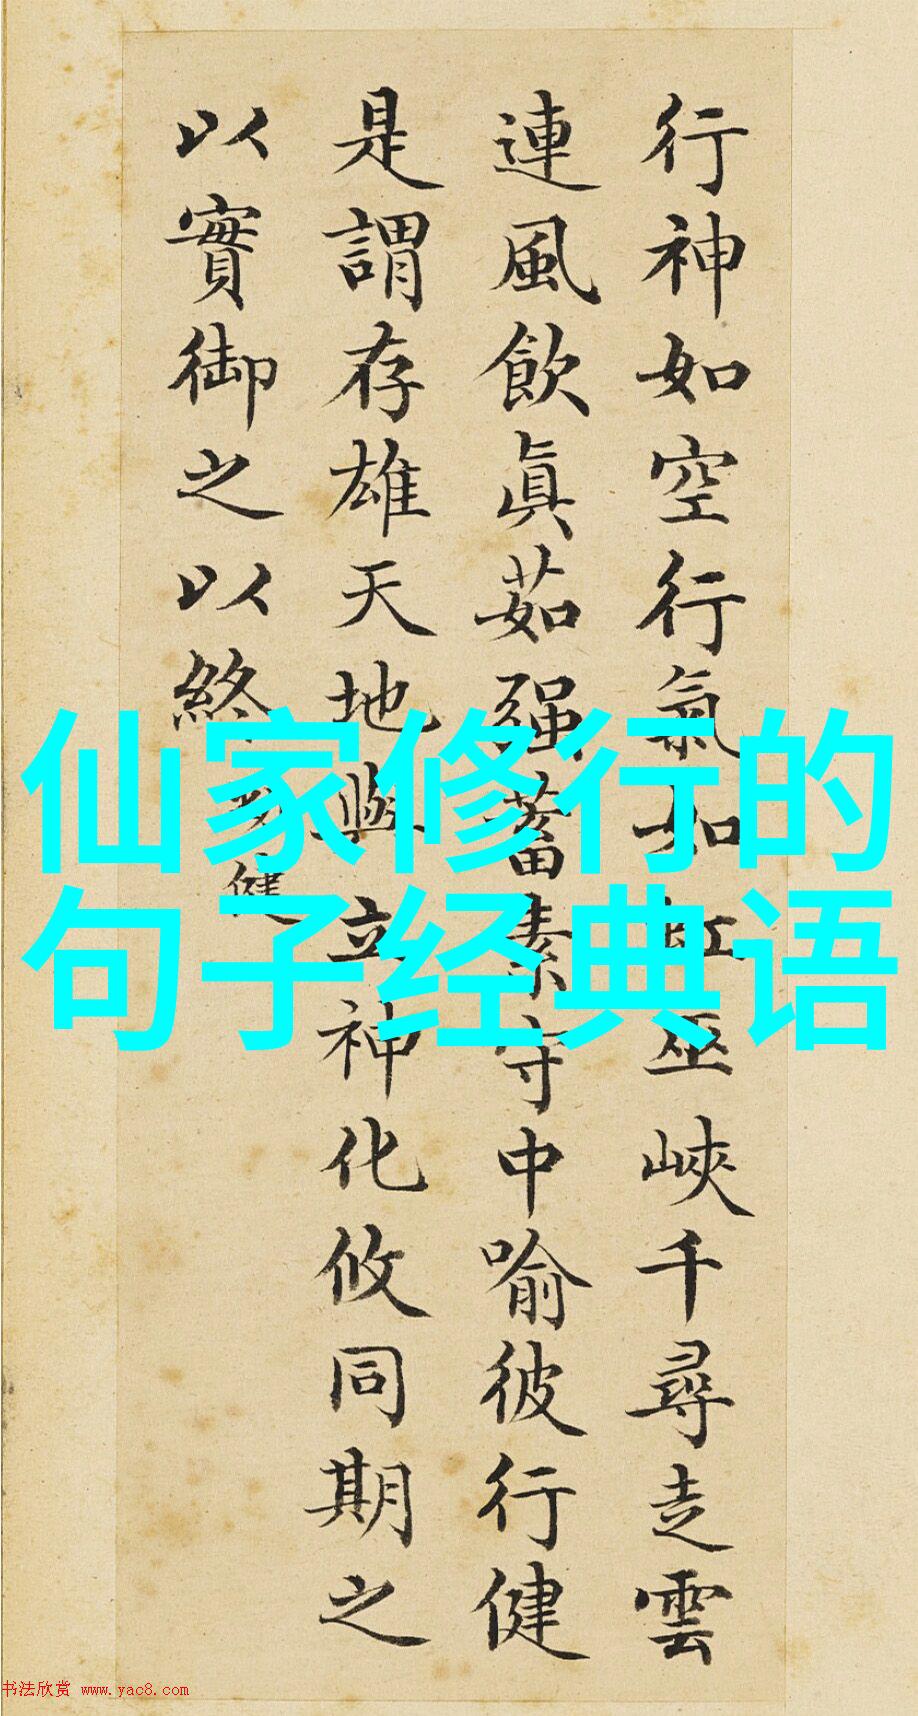 行神如空行氣如虹巫峽千尋走雲
連風飲眞茹强蓄素守中喻彼行健
是謂存雄天地與立神化攸同期之
以實御之以終
健
仙家修行的
句子经典语
书法欣赏 www.yac8.com